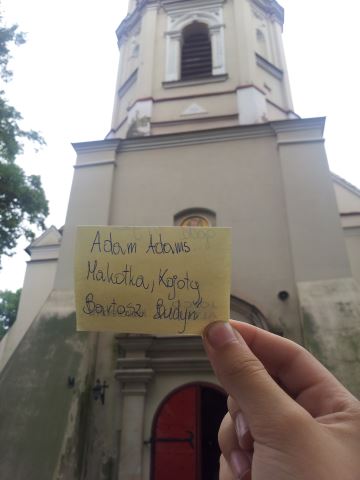 Adam Adams
Makotka, Kojoty
Bartosz Budyń